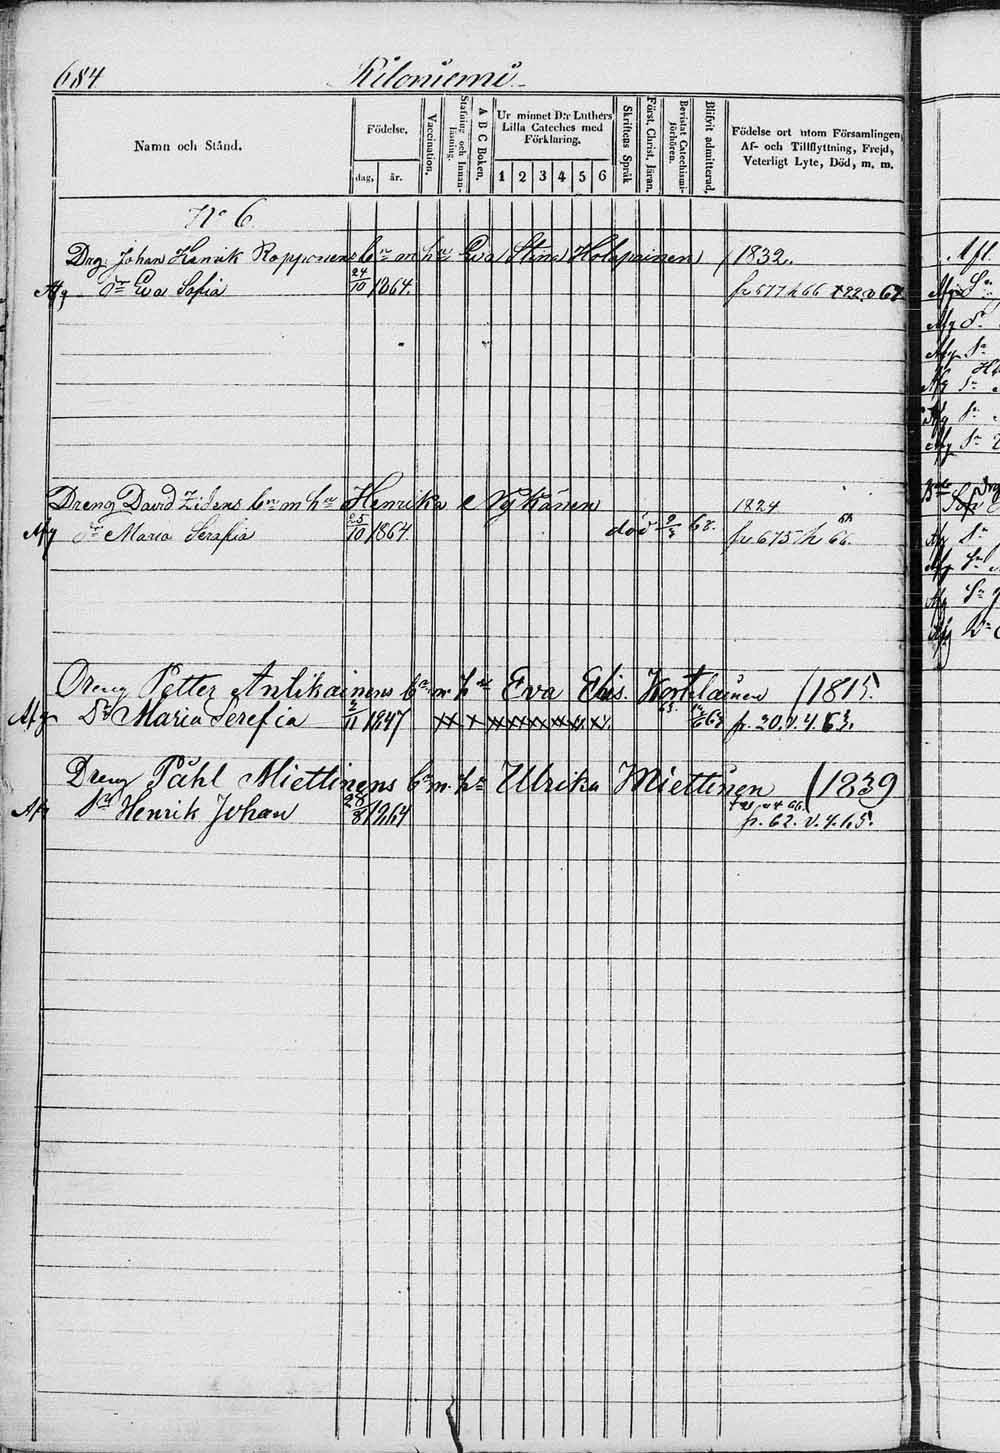 684 Kiloniemi
Namn och Stånd.
Födelse,
dag, år.
Vaccination.
Stafning och Innanläsning.
A B C Boken.
Ur minnet D:r Luthers Lilla Cateches med Förklaring.
1 2 3 4 5 6
Skriftens Språk
Först. Christ. läran.
Bevistat Catechismiförhören.
Blifvit admitterad.
Födelse ort utom Församlingen, Af- och Tillflyttning, Frejd, Veterligt Lyte, Död, m. m.
N° 6
Drg Johan Henrik Ropponens b:n m h:u Eva Stina Holopainen / 1832.
Afg D:r Eva Sofia 24/10 1864. fr 677 h 66
Dreng David Zidens b:n m h:u Henrika Nykänen 1824
Afg D:r Maria Serafia 25/10 1864. död 9/3 68. fr 675 h 66.
Dreng Petter Antikainens b:n m h:u Eva Elis. Kortelainen / 1815.
Afg D:r Maria Serefia 3/11 1847 fr. 30. v. 4. 63.
Dreng Påhl Miettinens b:n m. h:u Ulrika Miettinen / 1839
Afg S:n Henrik Johan 28/8 1864 fr. 62. v. 4. 65.